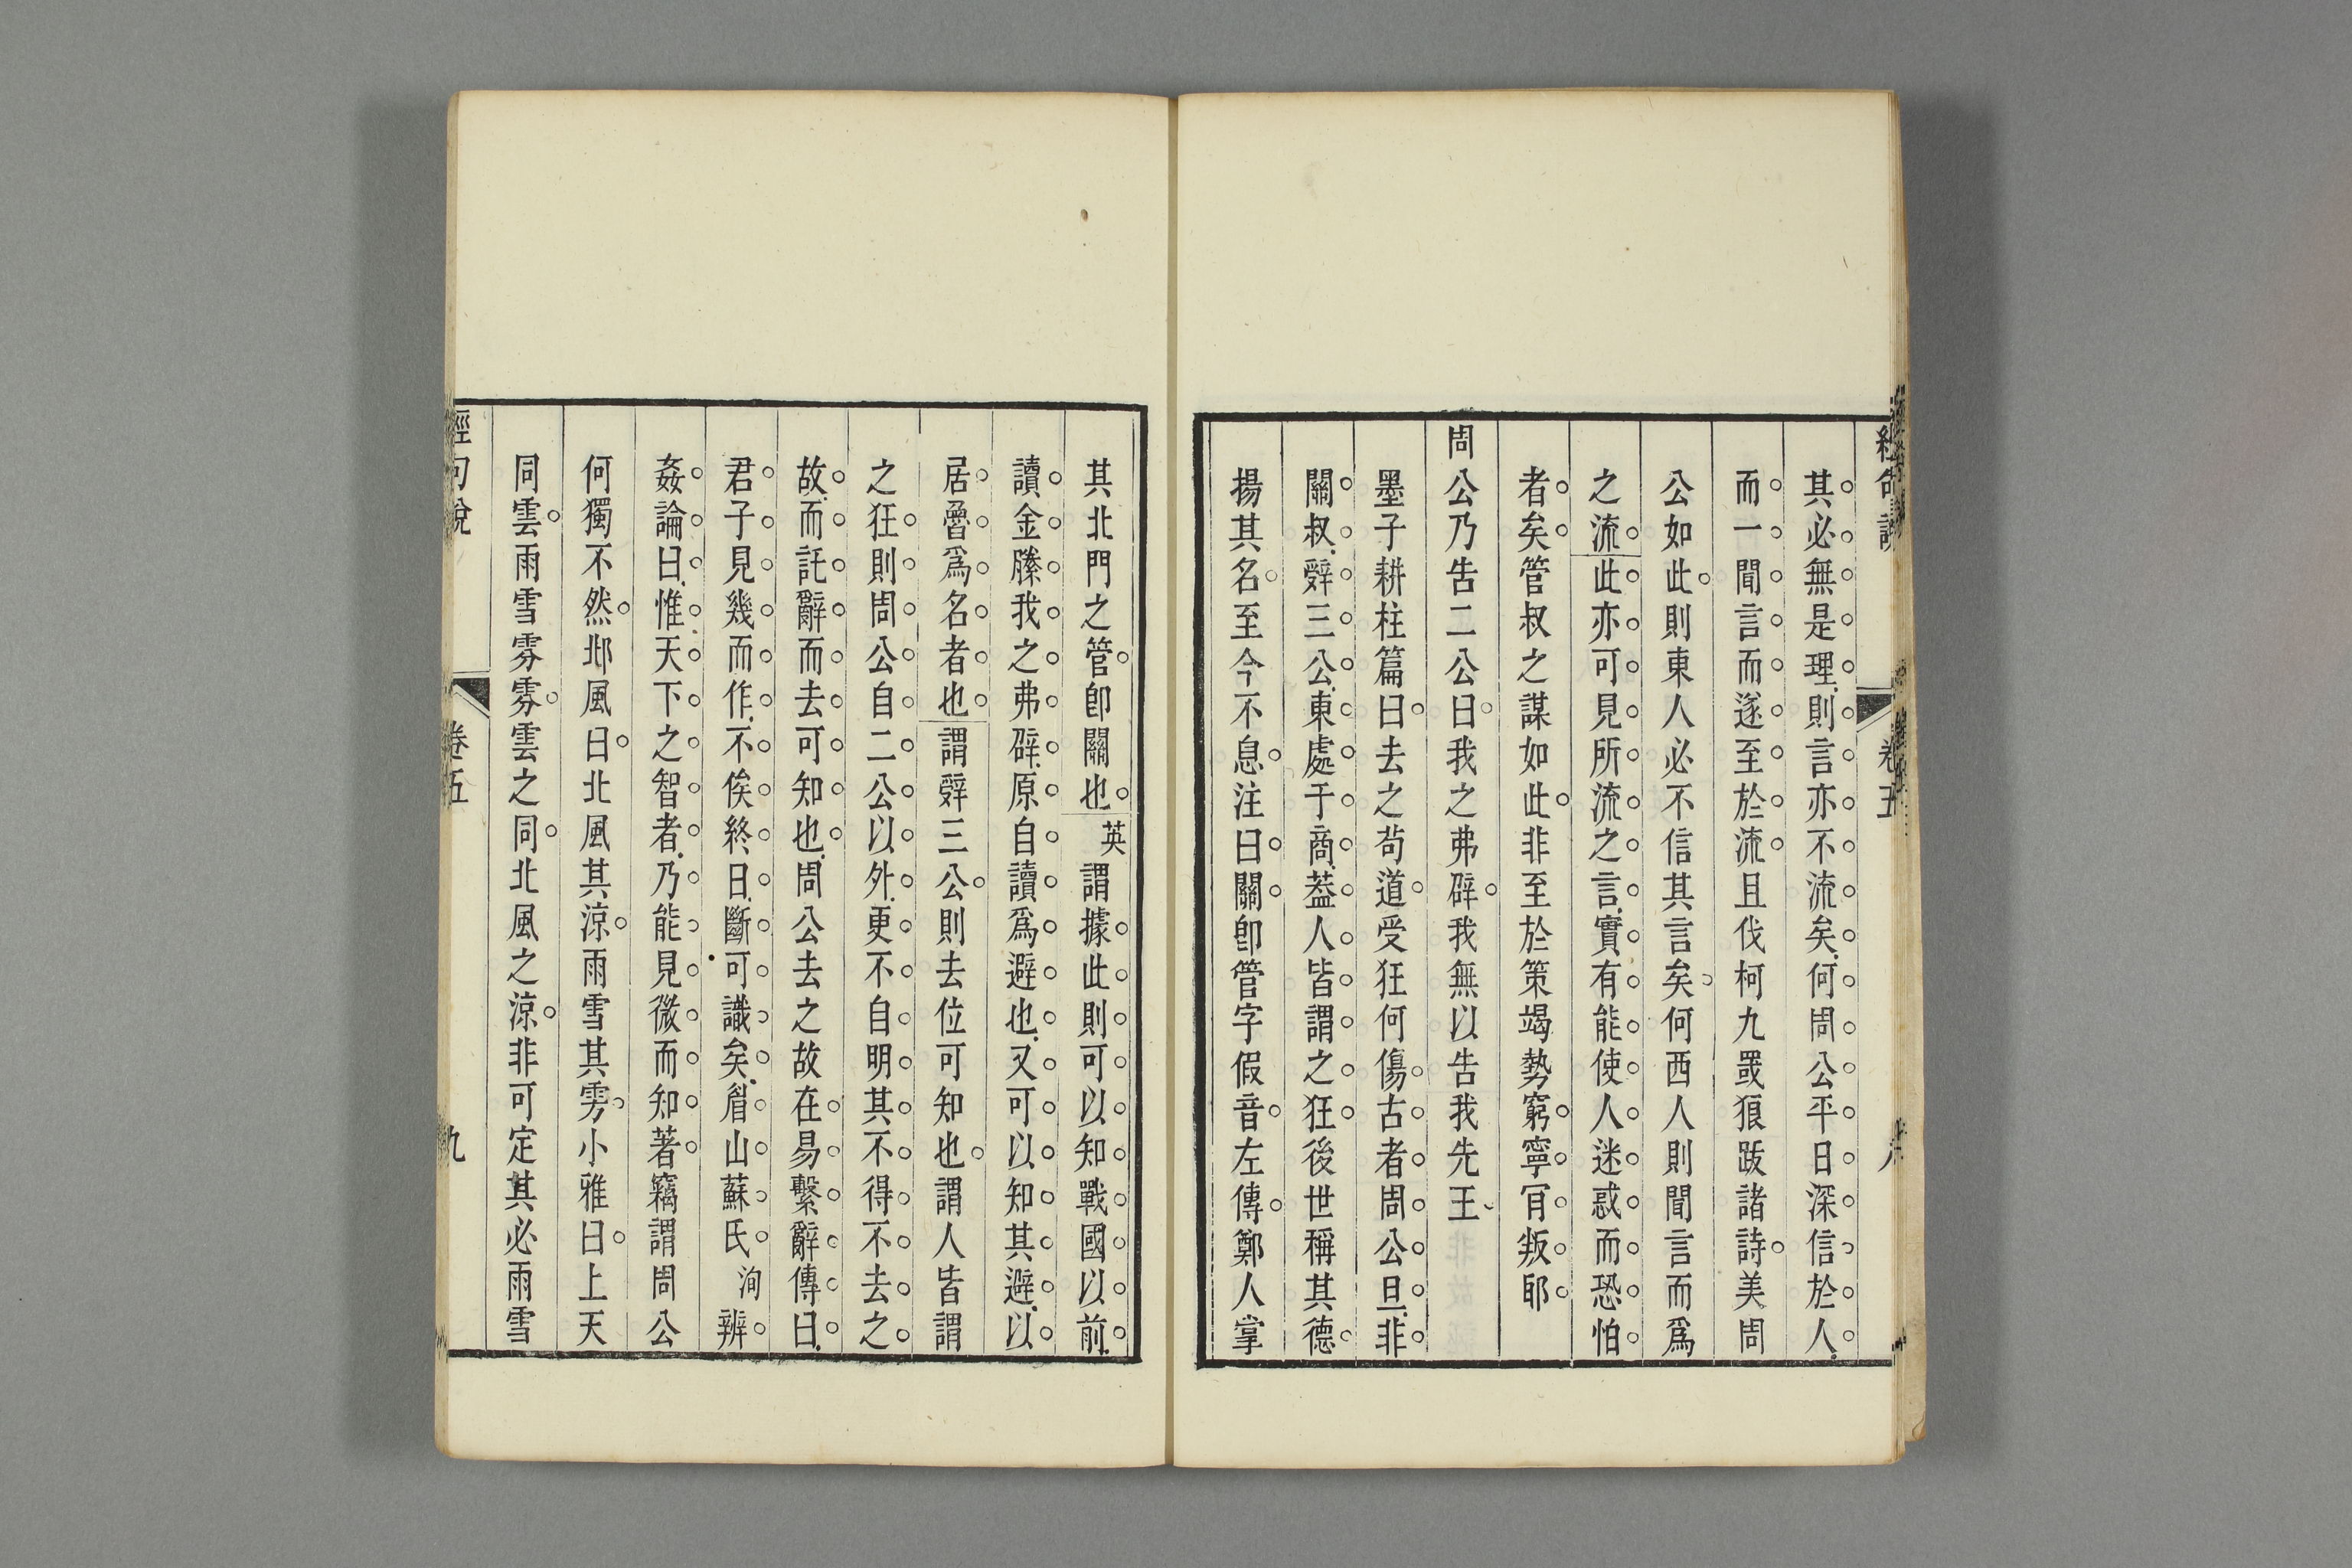 其必無是理則言亦不流矣何周公平日深信於人
而一聞言而遂至於流且伐柯九罭狼跋諸詩美周
公如此則東人必不信其言矣何西人則聞言而爲
之流此亦可見所流之言實有能使人迷惑而恐怕
者矣管叔之謀如此非至於策竭勢窮寧肎叛耶
周公乃告二公曰我之弗辟我無以告我先王
墨子耕柱篇曰去之茍道受狂何傷古者周公旦非
關叔辤三公東處于商葢人皆謂之狂後世稱其德
揚其名至今不息注曰關卽管字假音左傳鄭人掌
其北門之管卽關也英謂據此則可以知戰國以前
讀金縢我之弗辟原自讀爲避也又可以知其避以
居魯爲名者也謂辤三公則去位可知也謂人皆謂
之狂則周公自二公以外更不自明其不得不去之
故而託辭而去可知也周公去之故在易繫辭傳曰
君子見幾而作不俟終日斷可識矣眉山蘇氏洵辨
姦論曰惟天下之智者乃能見微而知著竊謂周公
何獨不然邶風曰北風其涼雨雪其雱小雅曰上天
同雲雨雪雰雰雲之同北風之涼非可定其必雨雪
經句說
卷五
九